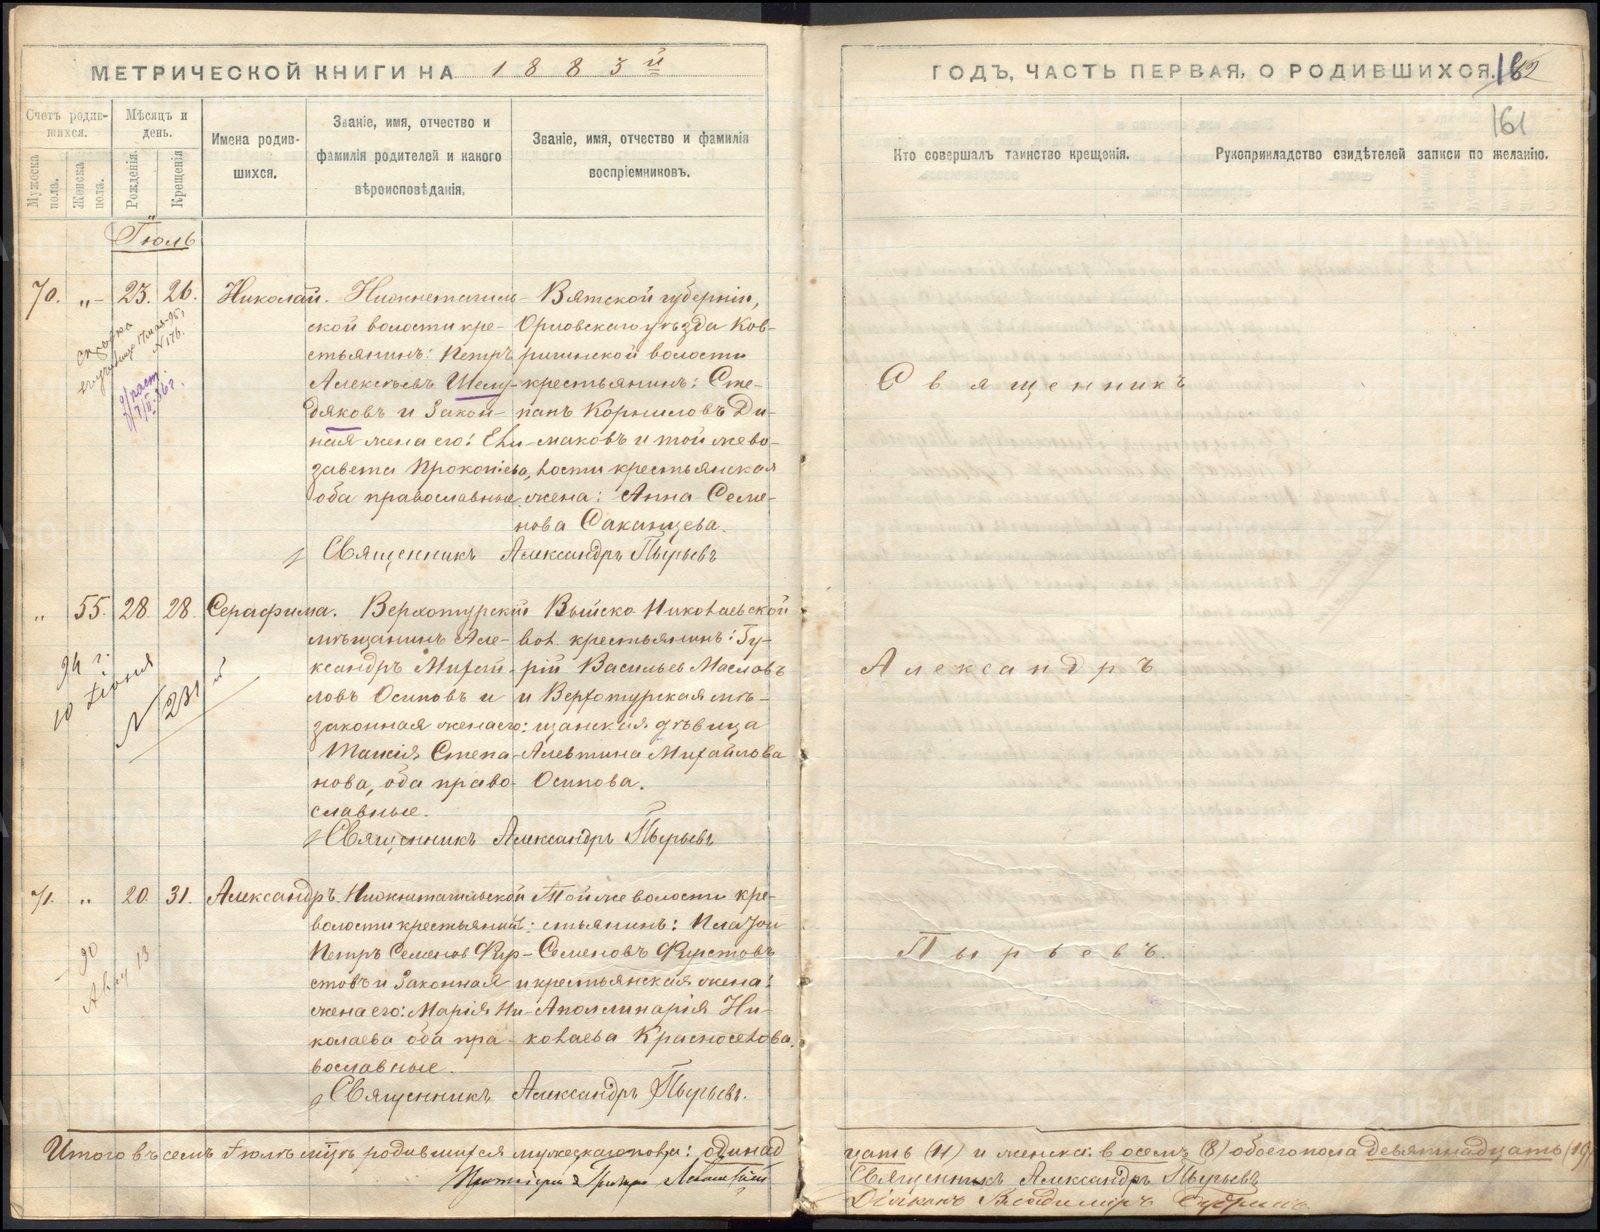 МЕТРИЧЕСКОЙ КНИГИ НА 1883й
ГОДЪ, ЧАСТЬ ПЕРВАЯ, О РОДИВШИХСЯ.
161
Счетъ родившихся.
Мужеска пола.
Женска пола.
Мѣсяцъ и день.
Рожденія.
Крещенія
Имена родив-
шихся.
Званіе, имя, отчество и
фамилія родителей и какого
вѣроисповѣданія.
Званіе, имя, отчество и фамилія
воспріемниковъ.
Кто совершалъ таинство крещенія.
Рукоприкладство свидѣтелей записи по желанію.
Іюль
70. „ 23. 26. Николай.
Нижнетагиль-
ской волости кре-
стьянинъ: Петръ
Алексѣевъ Шему-
дяковъ и Закон-
ная жена его: Ели-
завета Прокопіева,
оба православные
Вятской губерніи,
Орловскаго уѣзда Ков-
ригинской волости
крестьянинъ: Сте-
панъ Корниловъ Ди-
маковъ и той же во-
лости крестьянская
жена: Анна Семе-
нова Саканцева.
справка
N 176.
Священникъ Александръ Пырьевъ
„ 55. 28. 28. Серафима.
Верхотурскій
мѣщанинъ Але-
ксандръ Михай-
ловъ Осиповъ и
законная жена его:
Таисія Степа-
нова, оба право-
славные.
Выйско-Николаевской
вол. крестьянинъ: Гу-
рій Васильев Масловъ
и Верхотурская мѣ-
щанская дѣвица
Алевтина Михайлова
Осипова.
94 г.
10 Іюня
N 231й
Священникъ Александръ Пырьевъ
71. „ 20. 31. Александръ.
Нижнетагильской
волости крестьянинъ:
Петръ Семенов Фир-
стовъ и Законная
жена его: Марія Ни-
колаева оба пра-
вославные.
Той же волости кре-
стьянинъ: Платон
Семеновъ Фирстовъ
и крестьянская жена:
Аполлинарія Ни-
колаева Красноселова.
90
Авгу 13
Священникъ Александръ Пырьевъ.
Священникъ
Александръ
Пырьевъ.
Итого въ семъ Іюлѣ мцѣ родившихся мужескаго пола: одинад
цать (11) и женска: восемь (8) обоего пола девятнадцать (19)
Священникъ Александръ Пырьевъ
Діаконъ Владимиръ